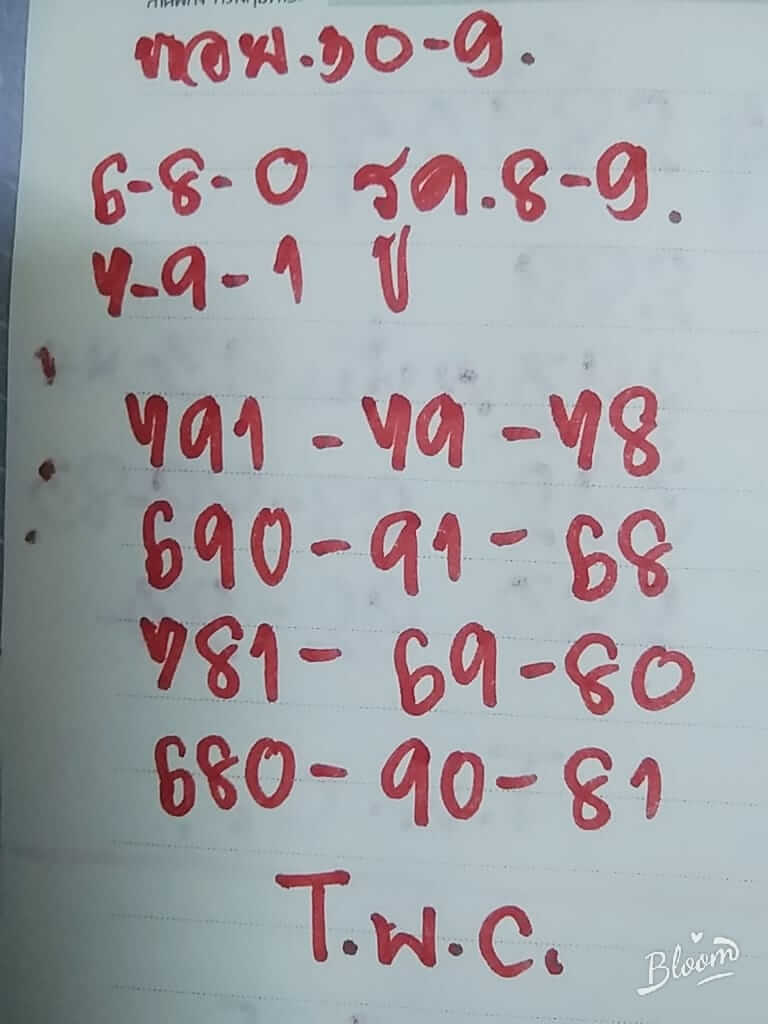 หอพ.30-9.
6-8-0 รด.8-9.
7-9-1 ปู
791 - 79 - 78
690 - 91 - 68
781 - 69 - 80
680 - 90 - 81
T.พ.C.
Bloom